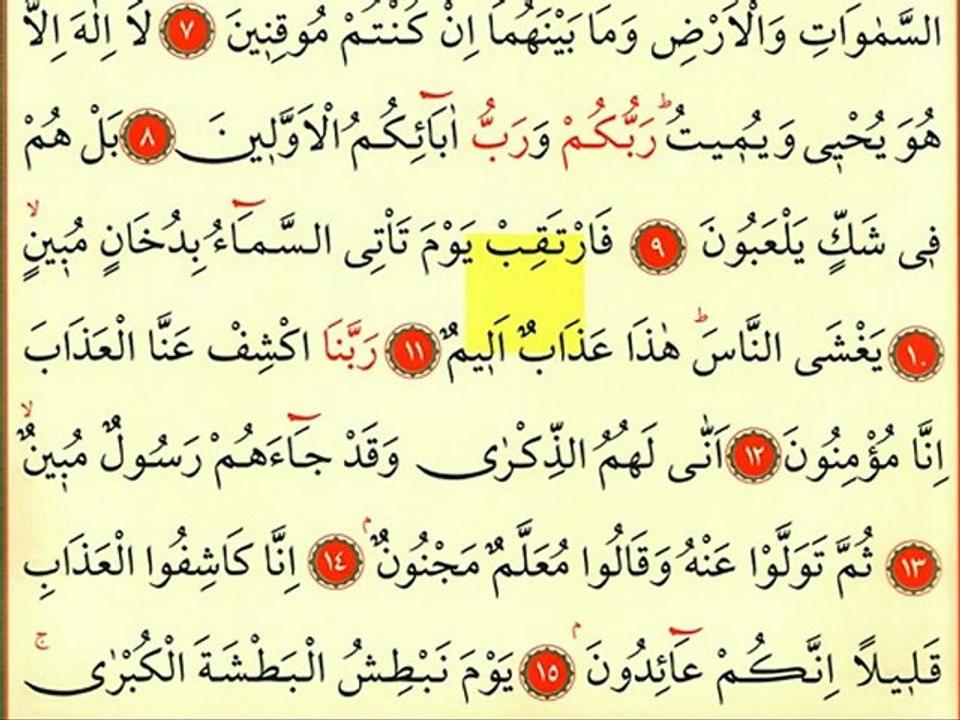 السَّمٰوَاتِ وَالْاَرْضِ وَمَا بَيْنَهُمَا اِنْ كُنْتُمْ مُوقِنٖينَ ٧ لَا اِلٰهَ اِلَّا
هُوَ يُحْيٖى وَيُمٖيتُ ط رَبُّكُمْ وَرَبُّ اٰبَٓائِكُمُ الْاَوَّلٖينَ ٨ بَلْ هُمْ
فٖى شَكٍّ يَلْعَبُونَ ٩ فَارْتَقِبْ يَوْمَ تَاْتِى السَّمَٓاءُ بِدُخَانٍ مُبٖينٍ لا
١٠ يَغْشَى النَّاسَ ط هٰذَا عَذَابٌ اَلٖيمٌ ١١ رَبَّنَا اكْشِفْ عَنَّا الْعَذَابَ
اِنَّا مُؤْمِنُونَ ١٢ اَنّٰى لَهُمُ الذِّكْرٰى وَقَدْ جَٓاءَهُمْ رَسُولٌ مُبٖينٌ لا
١٣ ثُمَّ تَوَلَّوْا عَنْهُ وَقَالُوا مُعَلَّمٌ مَجْنُونٌ م ١٤ اِنَّا كَاشِفُوا الْعَذَابِ
قَلٖيلًا اِنَّكُمْ عَٓائِدُونَ م ١٥ يَوْمَ نَبْطِشُ الْبَطْشَةَ الْكُبْرٰى ج